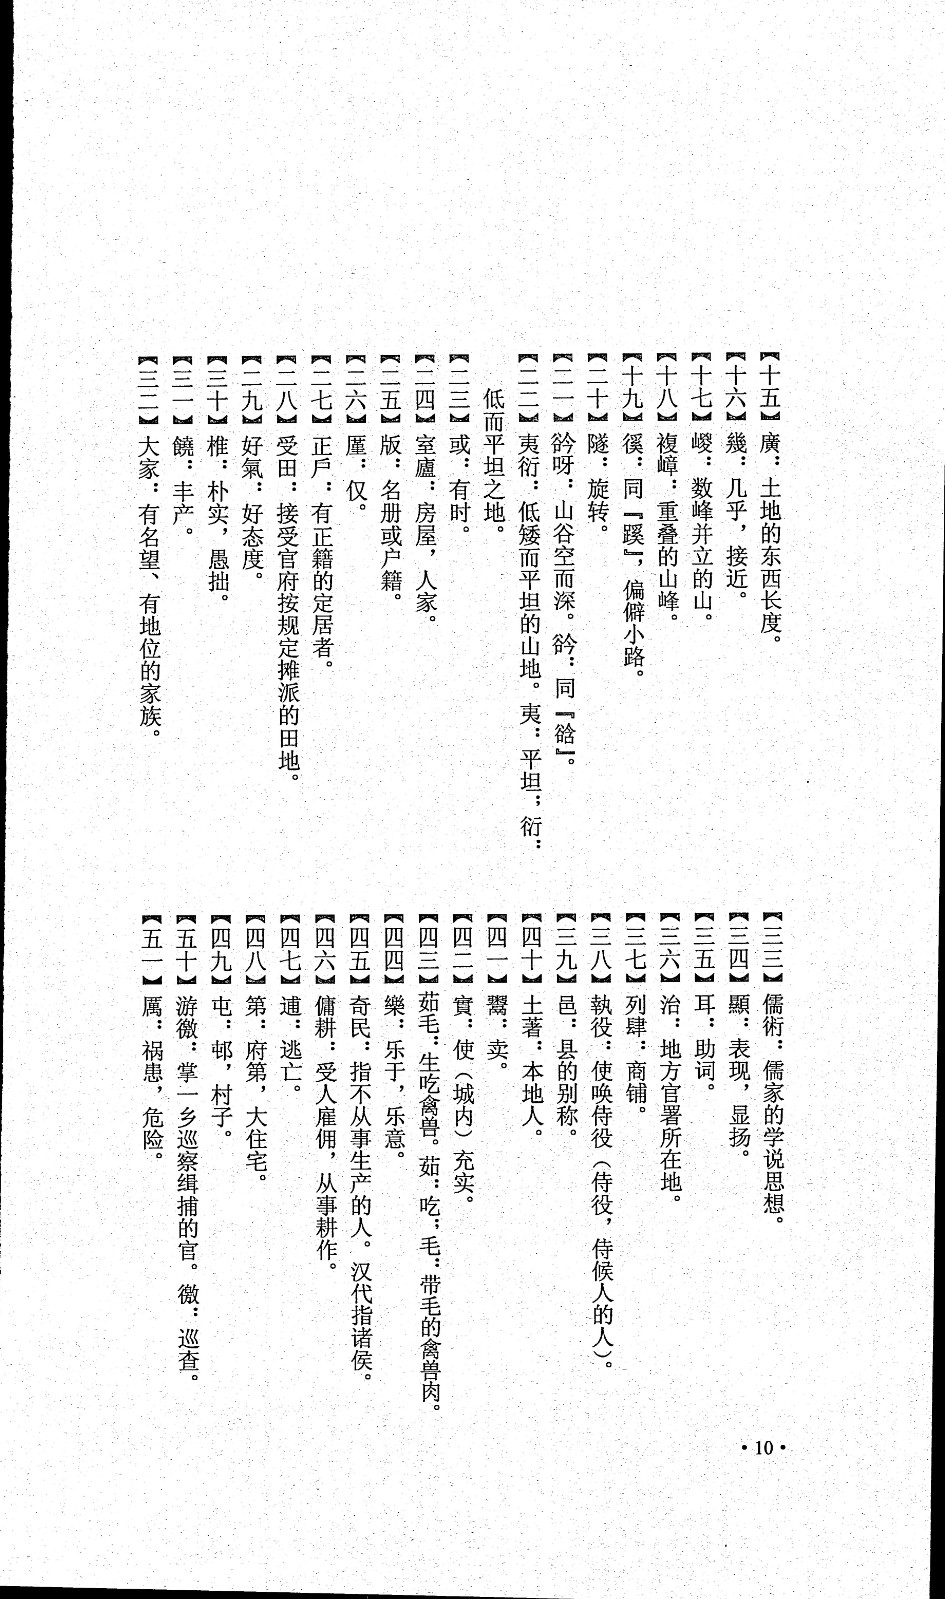 【十五】廣：土地的东西长度。
【十六】幾：几乎，接近。
【十七】嵕：数峰并立的山。
【十八】複嶂：重叠的山峰。
【十九】徯：同『蹊』，偏僻小路。
【二十】隧：旋转。
【二一】谽呀：山谷空而深。谽：同『谽』。
【二二】夷衍：低矮而平坦的山地。夷：平坦；衍：
低而平坦之地。
【二三】或：有时。
【二四】室廬：房屋，人家。
【二五】版：名册或户籍。
【二六】厪：仅。
【二七】正戶：有正籍的定居者。
【二八】受田：接受官府按规定摊派的田地。
【二九】好氣：好态度。
【三十】椎：朴实，愚拙。
【三一】饒：丰产。
【三二】大家：有名望、有地位的家族。
【三三】儒術：儒家的学说思想。
【三四】顯：表现，显扬。
【三五】耳：助词。
【三六】治：地方官署所在地。
【三七】列肆：商铺。
【三八】執役：使唤侍役（侍役，侍候人的人）。
【三九】邑：县的别称。
【四十】土著：本地人。
【四一】鬻：卖。
【四二】實：使（城内）充实。
【四三】茹毛：生吃禽兽。茹：吃；毛：带毛的禽兽肉。
【四四】樂：乐于，乐意。
【四五】奇民：指不从事生产的人。汉代指诸侯。
【四六】傭耕：受人雇佣，从事耕作。
【四七】逋：逃亡。
【四八】第：府第，大住宅。
【四九】屯：邨，村子。
【五十】游徼：掌一乡巡察缉捕的官。徼：巡查。
【五一】厲：祸患，危险。
·10·